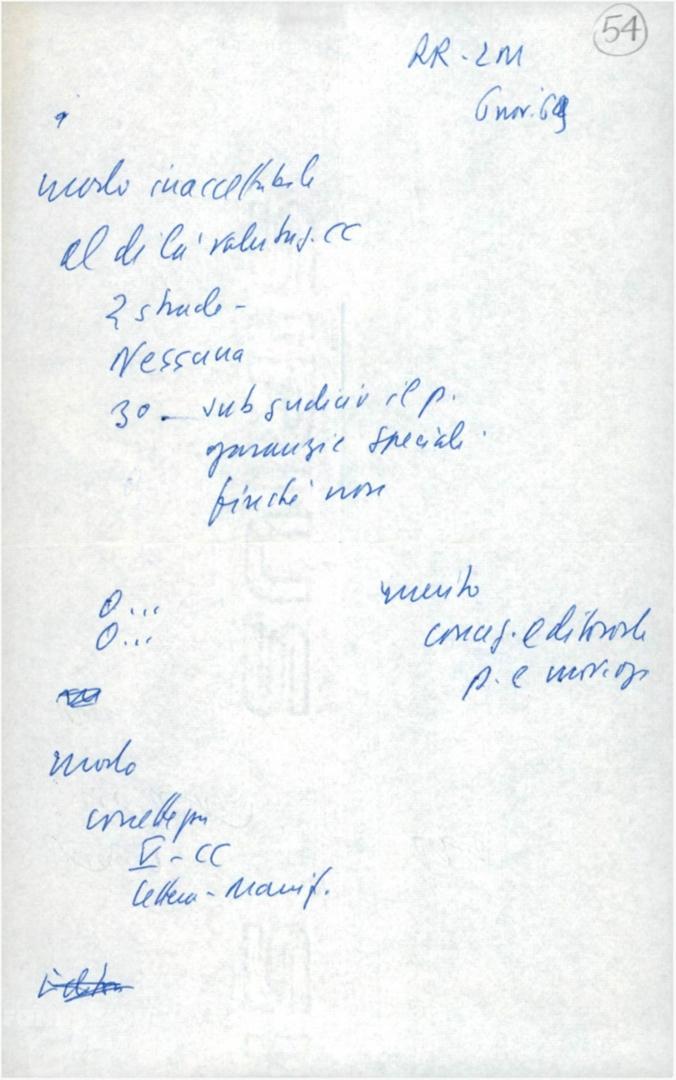 54
RR - LM
6 nov. 69
modo inaccettabile
al di là valutaz. CC
2 strade -
Nessuna
3o - sub judicio il p.
garanzie speciali
finché non
O...
O...
merito
concez. editoriale
p. e
modo
V - CC
lettera - Manif.